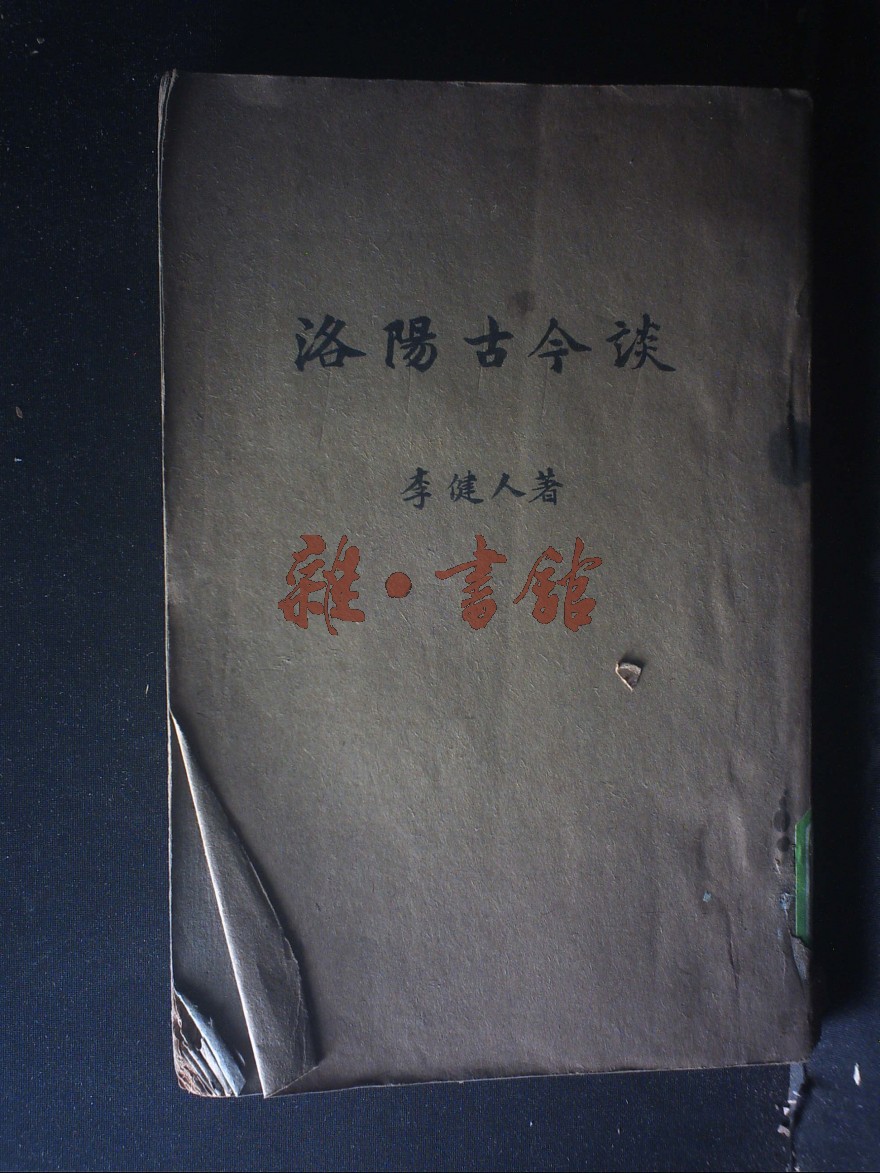 洛陽古今談
李健人著
雜·書館